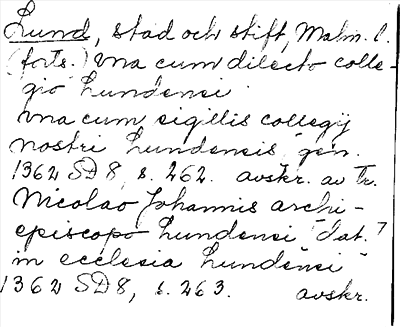 Lund, stad och stift, Malm. l.
(forts.) vna cum dilecto colle-
gio Lundensi
vna cum sigillis collegij
nostri Lundensis gen.
1362 SD 8, s. 262. avskr. av Tr.
Nicolao Johannis archi-
episcopo Lundensi "Dat.
in ecclesia Lundensi"
1362 SD 8, s. 263. avskr.